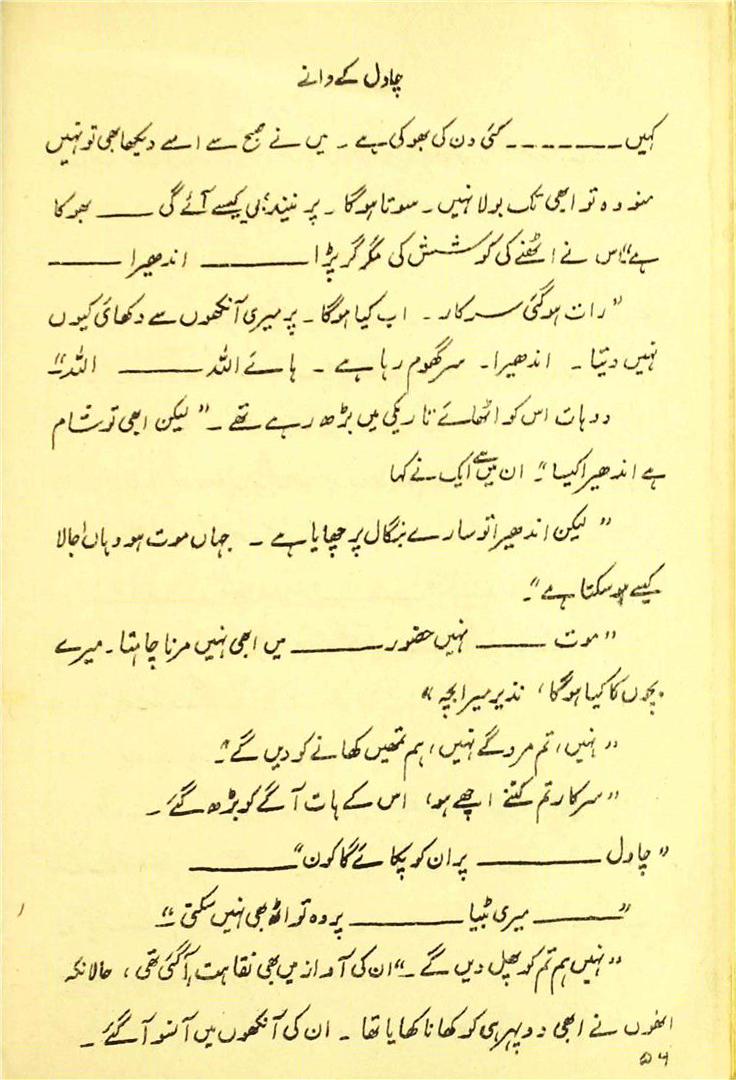 چاول کے دانے
کہیں ـ ـ ـ ـ ـ ـ ـ کئی دن کی بھوکی ہے ۔ میں نے صبح سے اسے دیکھا بھی تو نہیں
منو وہ تو ابھی تک بولا نہیں ۔ سوتا ہوگا ۔ پر نیند بھی کیسے آئے گی ــــ بھوکا
ہے" اس نے اٹھنے کی کوشش کی مگر گر پڑا ــــــــ اندھیرا ــــــ
"رات ہو گئی سرکار ۔ اب کیا ہوگا ۔ پر میری آنکھوں سے دکھائی کیوں
نہیں دیتا ۔ اندھیرا ۔ سر گھوم رہا ہے ۔ ہائے اللہ ــــــ اللہ"
دو ہات اس کو اٹھائے تاریکی میں بڑھ رہے تھے ۔ "لیکن ابھی تو شام
ہے اندھیرا کیسا"۔ ان میں سے ایک نے کہا
"لیکن اندھیرا تو سارے بنگال پر چھایا ہے ۔ جہاں موت ہو وہاں اجالا
کیسے ہو سکتا ہے"۔
"موت ــــــ نہیں حضور ــــــــ میں ابھی نہیں مرنا چاہتا ۔ میرے
بچوں کا کیا ہوگا، نذیر میرا بچہ"
"نہیں، تم مرو گے نہیں، ہم تمھیں کھانے کو دیں گے"۔
"سرکار تم کتنے اچھے ہو، اس کے ہات آگے کو بڑھ گئے ۔
"چاول ــــــــــــ پر ان کو پکائے گا کون" ــــــــــ
"ــــــــ میری بٹیا ــــــــــــ پر وہ تو اٹھ بھی نہیں سکتی"۔
"نہیں ہم تم کو پھل دیں گے ۔" ان کی آواز میں بھی نقاہت آ گئی تھی، حالانکہ
انھوں نے ابھی دوپہر ہی کو کھانا کھایا تھا ۔ ان کی آنکھوں میں آنسو آ گئے ۔
۵۶